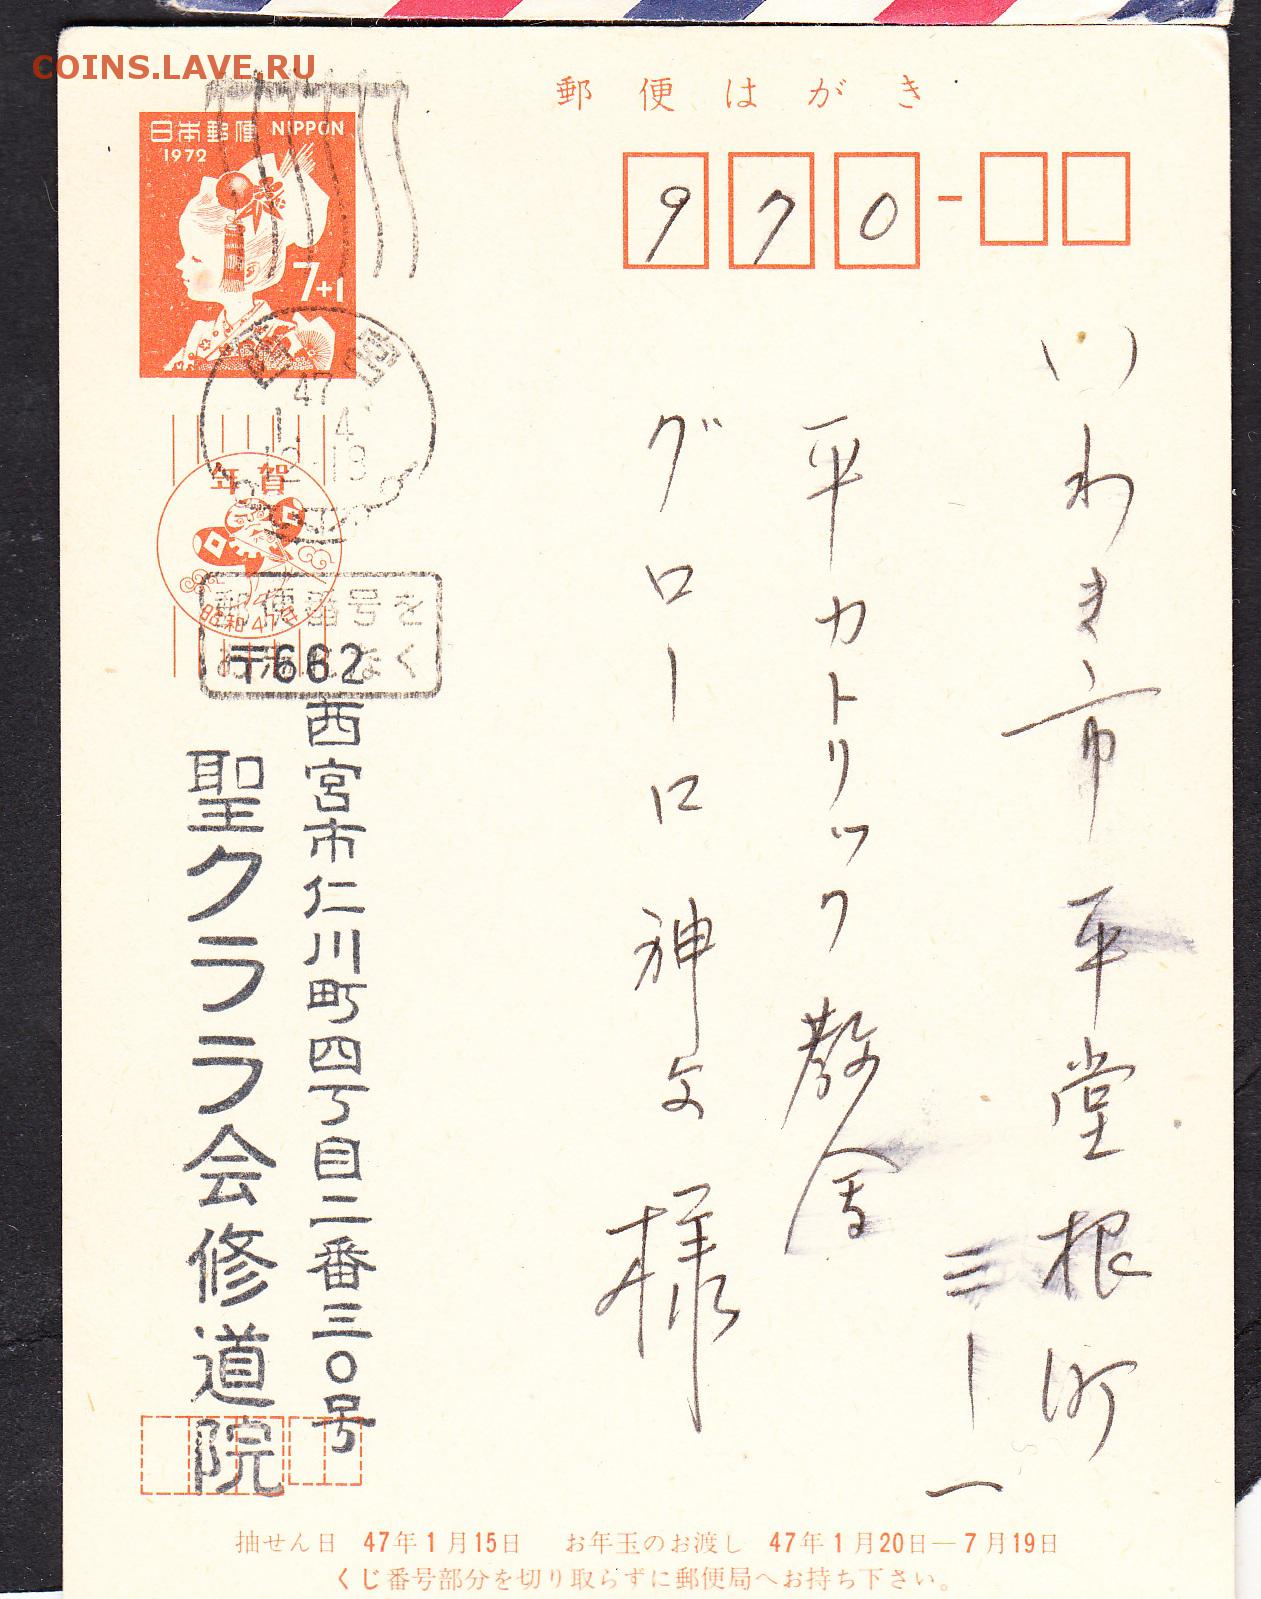 COINS.LAVE.RU
郵便はがき
日本郵便 NIPPON
1972
7+1
970-
いわき市平堂根町
三ー一
平カトリック教会
グローロ神父様
西宮
47
1. 4
12-18
年賀
昭和47年
郵便番号を
お なく
〒662
西宮市仁川町四丁目二番三〇号
聖クララ会修道院
抽せん日 47年1月15日 お年玉のお渡し 47年1月20日―7月19日
くじ番号部分を切り取らずに郵便局へお持ち下さい。